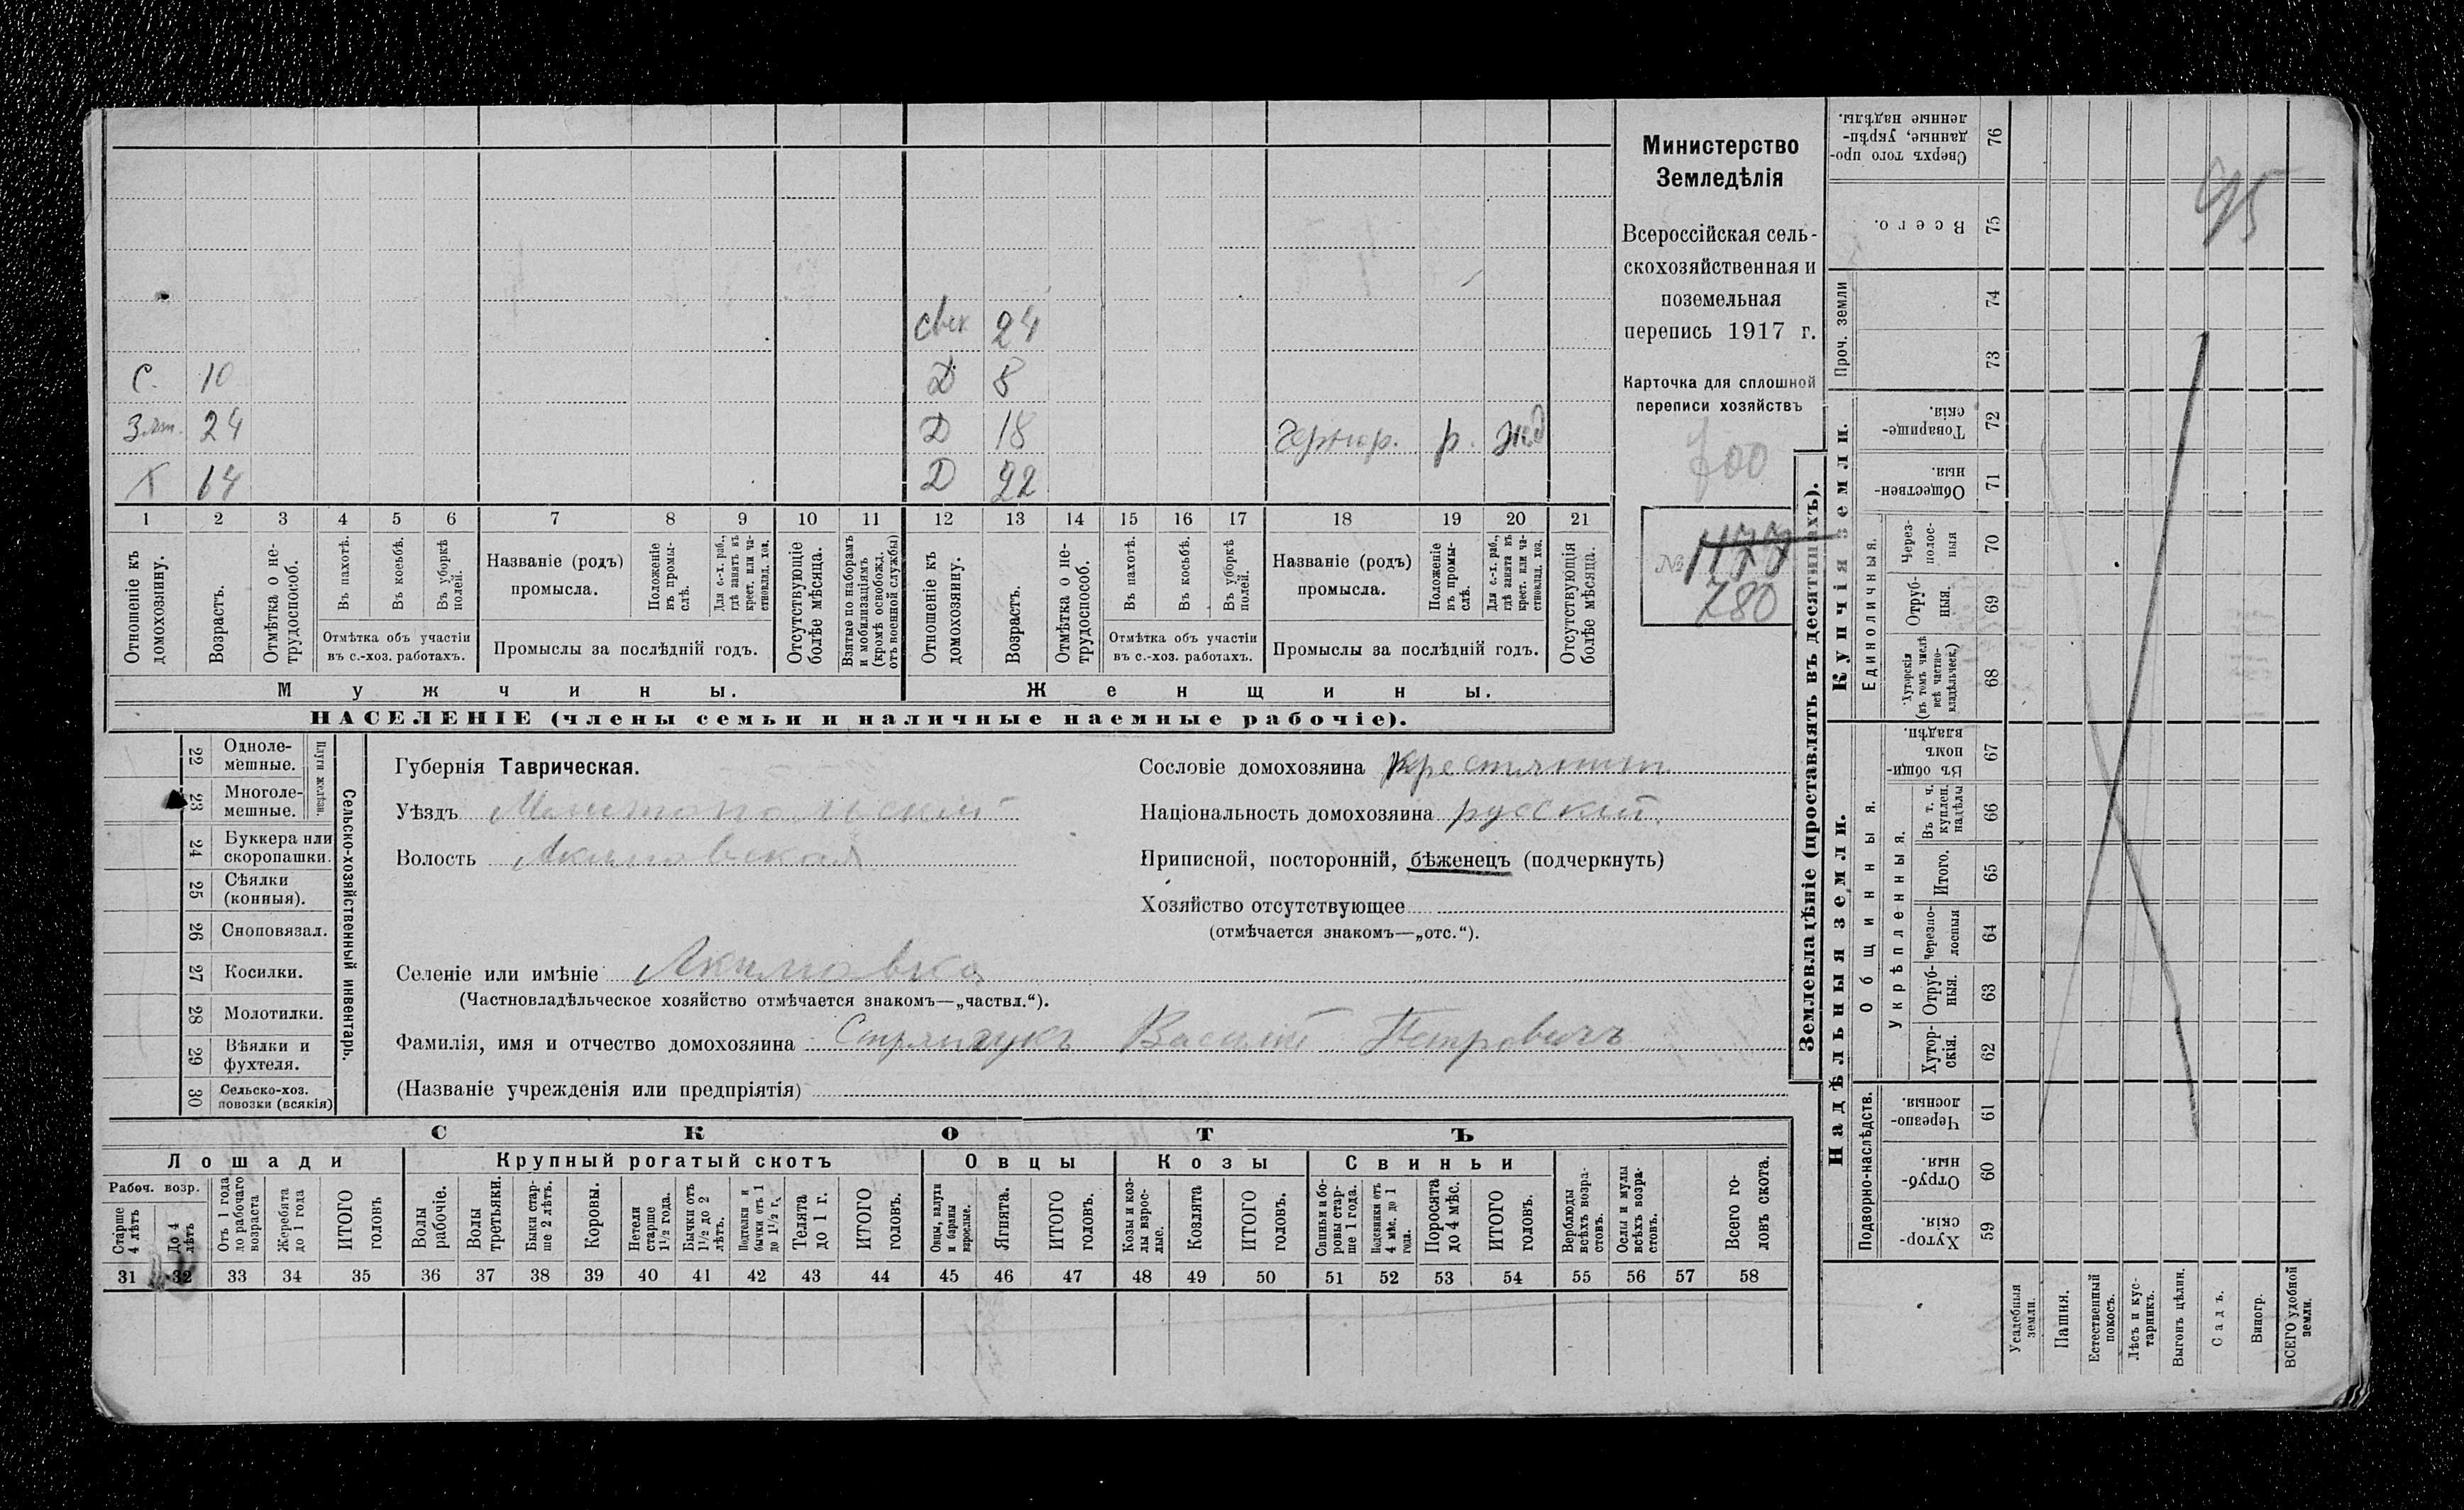 С. 10
Зят. 24
Х 64
свек 24
Д 8
Д 18 Чернор. р. жд
Д 22
1 2 3 4 5 6 7 8 9 10 11 12 13 14 15 16 17 18 19 20 21
Отношеніе къ домохозяину.
Возрастъ.
Отмѣтка о не-трудоспособ.
Въ пахотѣ.
Въ косьбѣ.
Въ уборкѣ полей.
Отмѣтка объ участіи въ с.-хоз. работахъ.
Названіе (родъ) промысла.
Положеніе въ промы-слѣ.
Для с.-х. раб., гдѣ занятъ въ крест. или ча-стновлад. хоз.
Промыслы за послѣдній годъ.
Отсутствующіе болѣе мѣсяца.
Взятые по наборамъ и мобилизаціямъ (кромѣ освобожд. отъ военной службы)
Отношеніе къ домохозяину.
Возрастъ.
Отмѣтка о не-трудоспособ.
Въ пахотѣ.
Въ косьбѣ.
Въ уборкѣ полей.
Отмѣтка объ участіи въ с.-хоз. работахъ.
Названіе (родъ) промысла.
Положеніе въ промы-слѣ.
Для с.-х. раб., гдѣ занята въ крест. или ча-стновлад. хоз.
Промыслы за послѣдній годъ.
Отсутствующія болѣе мѣсяца.
Мужчины.
Женщины.
НАСЕЛЕНІЕ (члены семьи и наличные наемные рабочіе).
Министерство
Земледѣлія
Всероссійская сель-
скохозяйственная и
поземельная
перепись 1917 г.
Карточка для сплошной
переписи хозяйствъ
700
№ 1177
780
Сельско-хозяйственный инвентарь.
Плуги желѣзн.
22 Одноле-мешные.
23 Многоле-мешные.
24 Буккера или скоропашки.
25 Сѣялки (конныя).
26 Сноповязал.
27 Косилки.
28 Молотилки.
29 Вѣялки и фухтеля.
30 Сельско-хоз. повозки (всякія)
Губернія Таврическая.
Уѣздъ Мелитопольскій
Волость Акимовская
Сословіе домохозяина крестьянин
Національность домохозяина русскій.
Приписной, посторонній, бѣженецъ (подчеркнуть)
Хозяйство отсутствующее
(отмѣчается знакомъ—„отс.“).
Селеніе или имѣніе Акимовка
(Частновладѣльческое хозяйство отмѣчается знакомъ—„частвл.“).
Фамилія, имя и отчество домохозяина Василій Петровичъ
(Названіе учрежденія или предпріятія)
СКОТЪ
Лошади
Крупный рогатый скотъ
Овцы
Козы
Свиньи
Рабоч. возр.
Старше 4 лѣтъ
До 4 лѣтъ
Отъ 1 года до рабочаго возраста
Жеребята до 1 года
ИТОГО головъ
Волы рабочіе.
Волы третьяки.
Быки стар-ше 2 лѣтъ.
Коровы.
Нетели старше 1½ года.
Бычки отъ 1½ до 2 лѣтъ.
Подтелки и бычки отъ 1 до 1½ г.
Телята до 1 г.
ИТОГО головъ.
Овцы, валухи и бараны взрослые.
Ягнята.
ИТОГО головъ.
Козы и коз-лы взрос-лые.
Козлята
ИТОГО головъ.
Свиньи и бо-ровы стар-ше 1 года.
Подсвинки отъ 4 мѣс. до 1 года.
Поросята до 4 мѣс.
ИТОГО головъ.
Верблюды всѣхъ возра-стовъ.
Ослы и мулы всѣхъ возра-стовъ.
Всего го-ловъ скота.
31 32 33 34 35 36 37 38 39 40 41 42 43 44 45 46 47 48 49 50 51 52 53 54 55 56 57 58
Землевладѣніе (проставлять въ десятинахъ).
Купчія земли.
Надѣльныя земли.
Сверхъ того про-данные, укрѣп-ленные надѣлы. 76
Всего. 75
Проч. земли
74
73
Товарище-скія. 72
Обществен-ныя. 71
Единоличныя.
Через-полос-ныя 70
Отруб-ныя. 69
Хуторскія (въ томъ числѣ всѣ частно-владѣльческ.) 68
Общинныя.
Въ общи-номъ владѣн. 67
Укрѣпленныя.
Въ т. ч. куплен. надѣлы 66
Итого. 65
Черезпо-лосныя 64
Отруб-ныя. 63
Хутор-скія. 62
Подворно-наслѣдств.
Черезпо-лосныя. 61
Отруб-ныя. 60
Хутор-скія. 59
Усадебныя земли.
Пашня.
Естественный покосъ.
Лѣсъ и кус-тарникъ.
Выгонъ цѣлин.
Садъ.
Виногр.
ВСЕГО удобной земли.